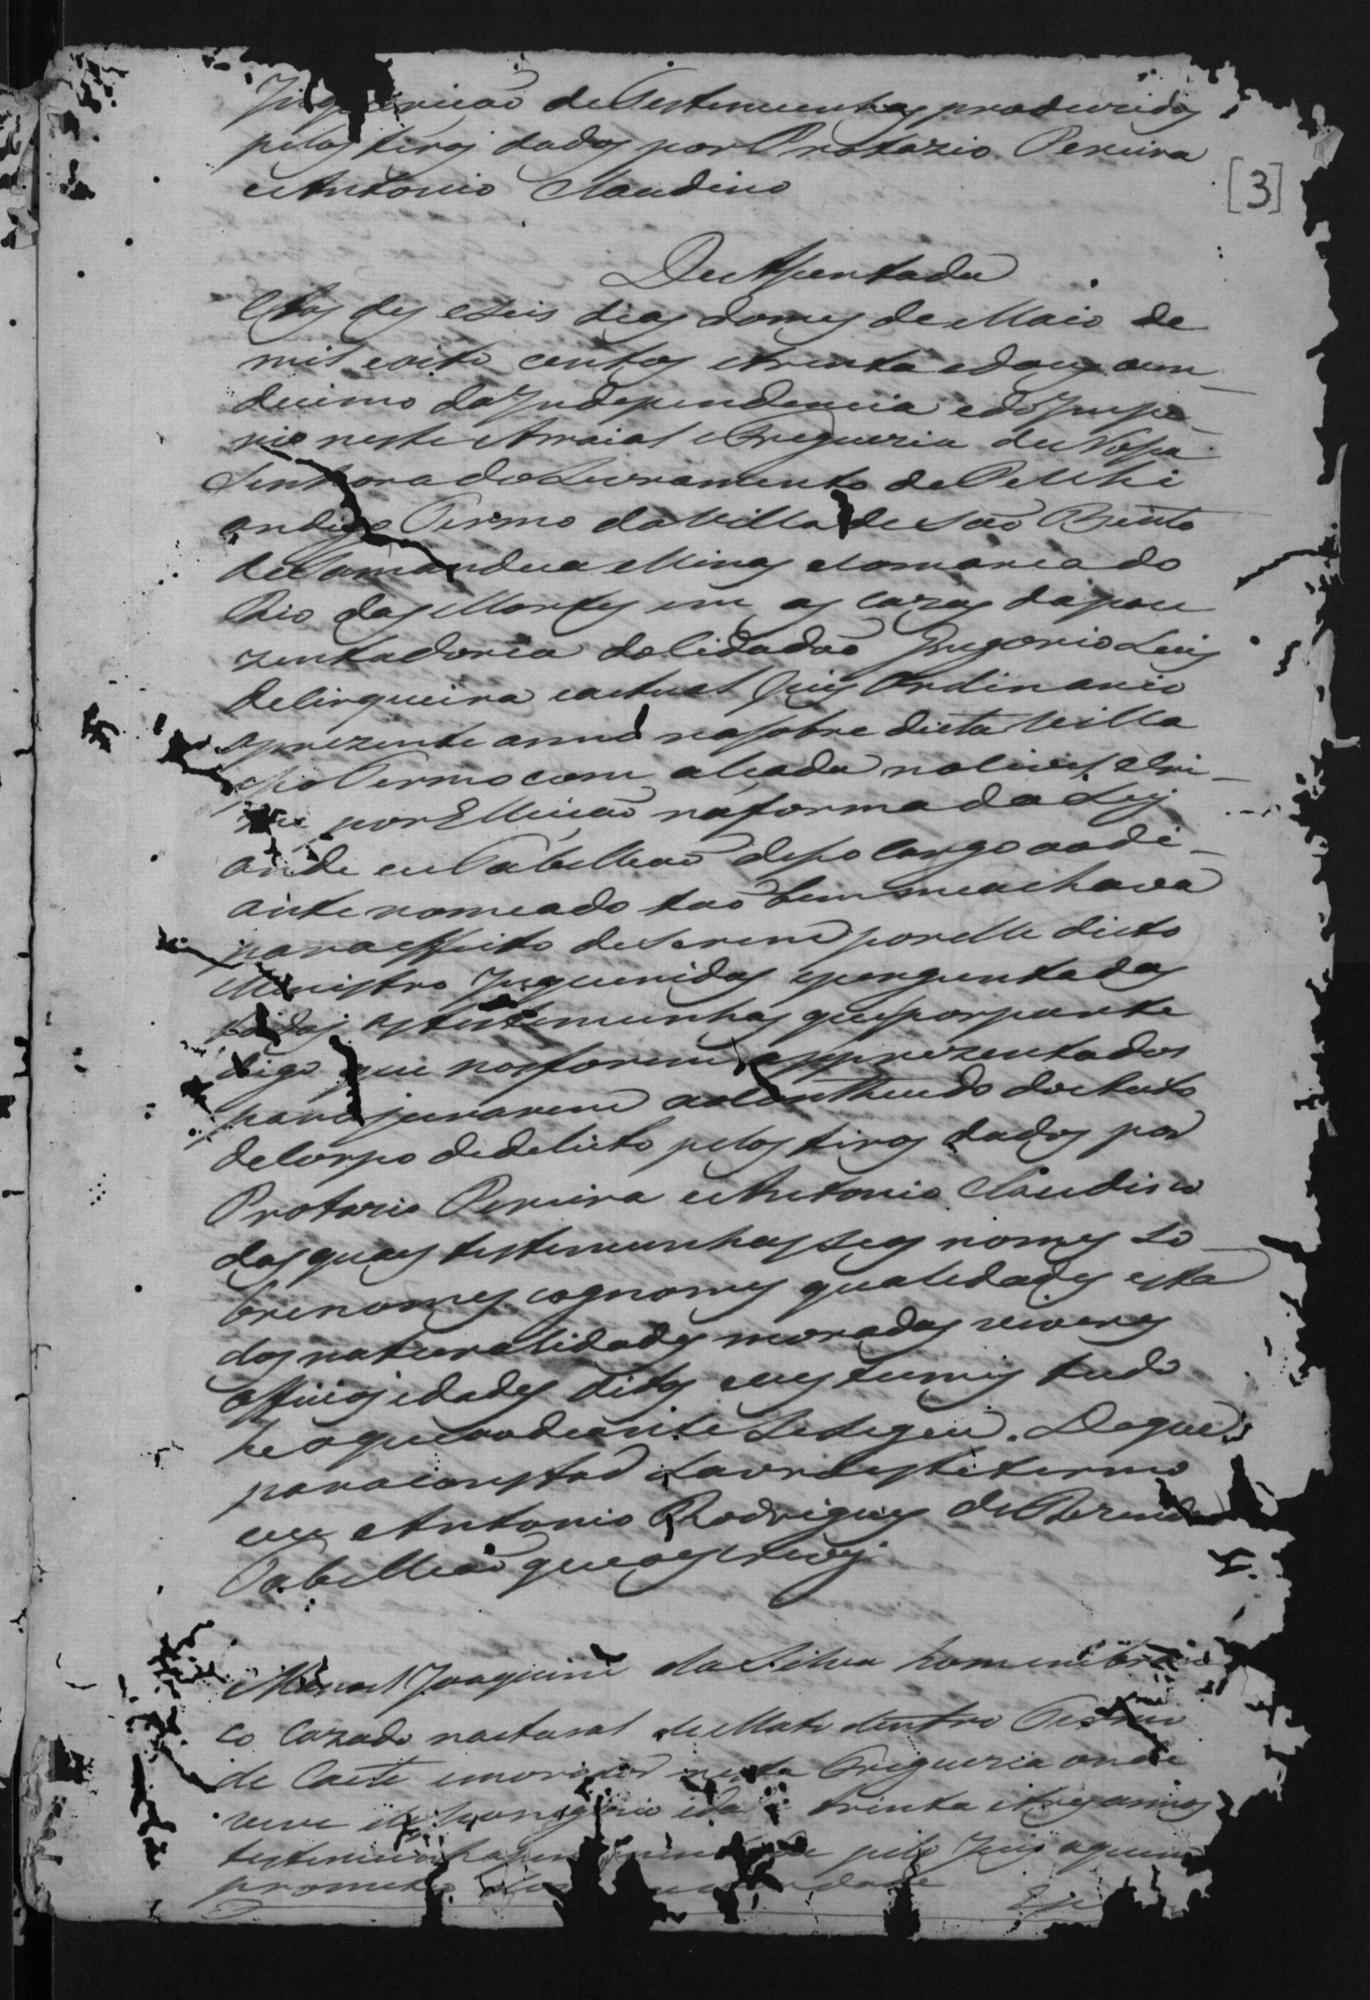 Inquirição de Testemunhas produzidas
pelos tiros dados por Protazio Pereira
e Antonio Claudino
[3]
De Asentada
Aos des e seis dias do mes de Maio de
mil e oito centos e trinta e dous aun
decimo da Independencia e do Impe
rio neste Arraial e Freguezia de Nossa
Senhora do Livramento do
digo Termo da Villa de São Bento
de Tamandua Minas e Comarca do
Rio das Mortes em as cazas da pou
zentadoria do Cidadão Gregorio Luis
de Cirqueira e actual Juis Ordinario
o prezente anno na sobre dieta Villa
e seo Termo com alçada no Civel e Cri
me por Elleicão na forma da Ley
onde eu Tabelleão de seo cargo ao di
ante nomeado tão bem me achava
para effeito de serem por elle dicto
Ministro Inqueridas e perguntadas
todas as testemunhas que por parte
digo que nos forem apprezentadas
para jurarem ao Contheudo do Auto
de Corpo de delicto pelos tiros dados por
Protazio Pereira e Antonio Claudino
das quaes testemunhas seos nomes so
brenomes cognomes qualidades esta
dos naturalidades moradas viveres
officios idades ditos e custumes tudo
he o que ao deante se segue. De que
para constar lavrei este termo
eu Antonio Rodrigues de
Tabelleão que o escrevi
Manoel Joaquim da Silva homem bran
co Cazado natural de Mato dentro Termo
de Caeté e morador nesta Freguezia onde
vive de seo negocio idade trinta e tres annos
testemunha pelo Juis a quem
prometeo dizer verdade